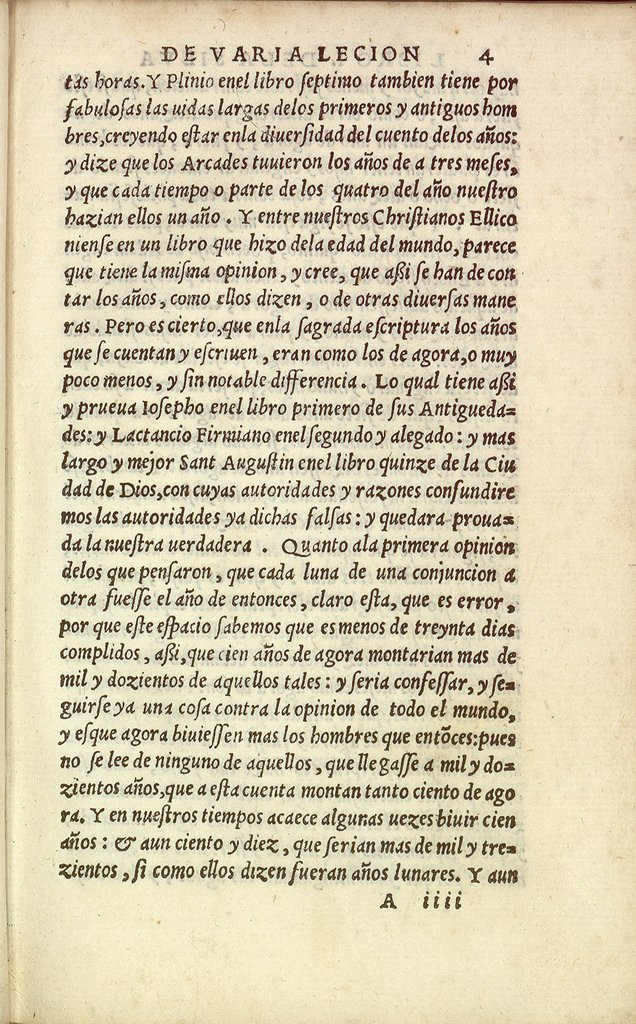 DE VARIA LECION 4
tas horas. Y Plinio enel libro ſeptimo tambien tiene por
fabuloſas las uidas largas delos primeros y antiguos hom
bres, creyendo eſtar enla diuerſidad del cuento delos años:
y dize que los Arcades tuuieron los años de a tres meſes,
y que cada tiempo o parte de los quatro del año nueſtro
hazian ellos un año . Y entre nueſtros Chriſtianos Ellico
nienſe en un libro que hizo dela edad del mundo, parece
que tiene la miſma opinion, y cree, que aßi se han de con
tar los años, como ellos dizen, o de otras diuerſas mane
ras. Pero es cierto, que enla ſagrada eſcriptura los años
que ſe cuentan y eſcriuen, eran como los de agora, o muy
poco menos, y ſin notable differencia. Lo qual tiene aßi
y prueua Ioſepho enel libro primero de ſus Antigueda=
des: y Lactancio Firmiano enel ſegundo y alegado: y mas
largo y mejor Sant Auguſtin enel libro quinze de la Ciu
dad de Dios, con cuyas autoridades y razones confundire
mos las autoridades ya dichas falſas: y quedara proua=
da la nueſtra uerdadera . Quanto ala primera opinion
delos que penſaron, que cada luna de una conjuncion a
otra fueſſe el año de entonces, claro eſta, que es error,
por que eſte eſpacio ſabemos que es menos de treynta dias
complidos, aßi, que cien años de agora montarian mas de
mil y dozientos de aquellos tales: y ſeria confeſſar, y ſe=
guirſe ya una coſa contra la opinion de todo el mundo,
y eſque agora biuieſſen mas los hombres que entõces: pues
no ſe lee de ninguno de aquellos, que llegaſſe a mil y do=
zientos años, que a eſta cuenta montan tanto ciento de ago
ra. Y en nueſtros tiempos acaece algunas uezes biuir cien
años: & aun ciento y diez, que ſerian mas de mil y tre=
zientos, ſi como ellos dizen fueran años lunares. Y aun
A iiii